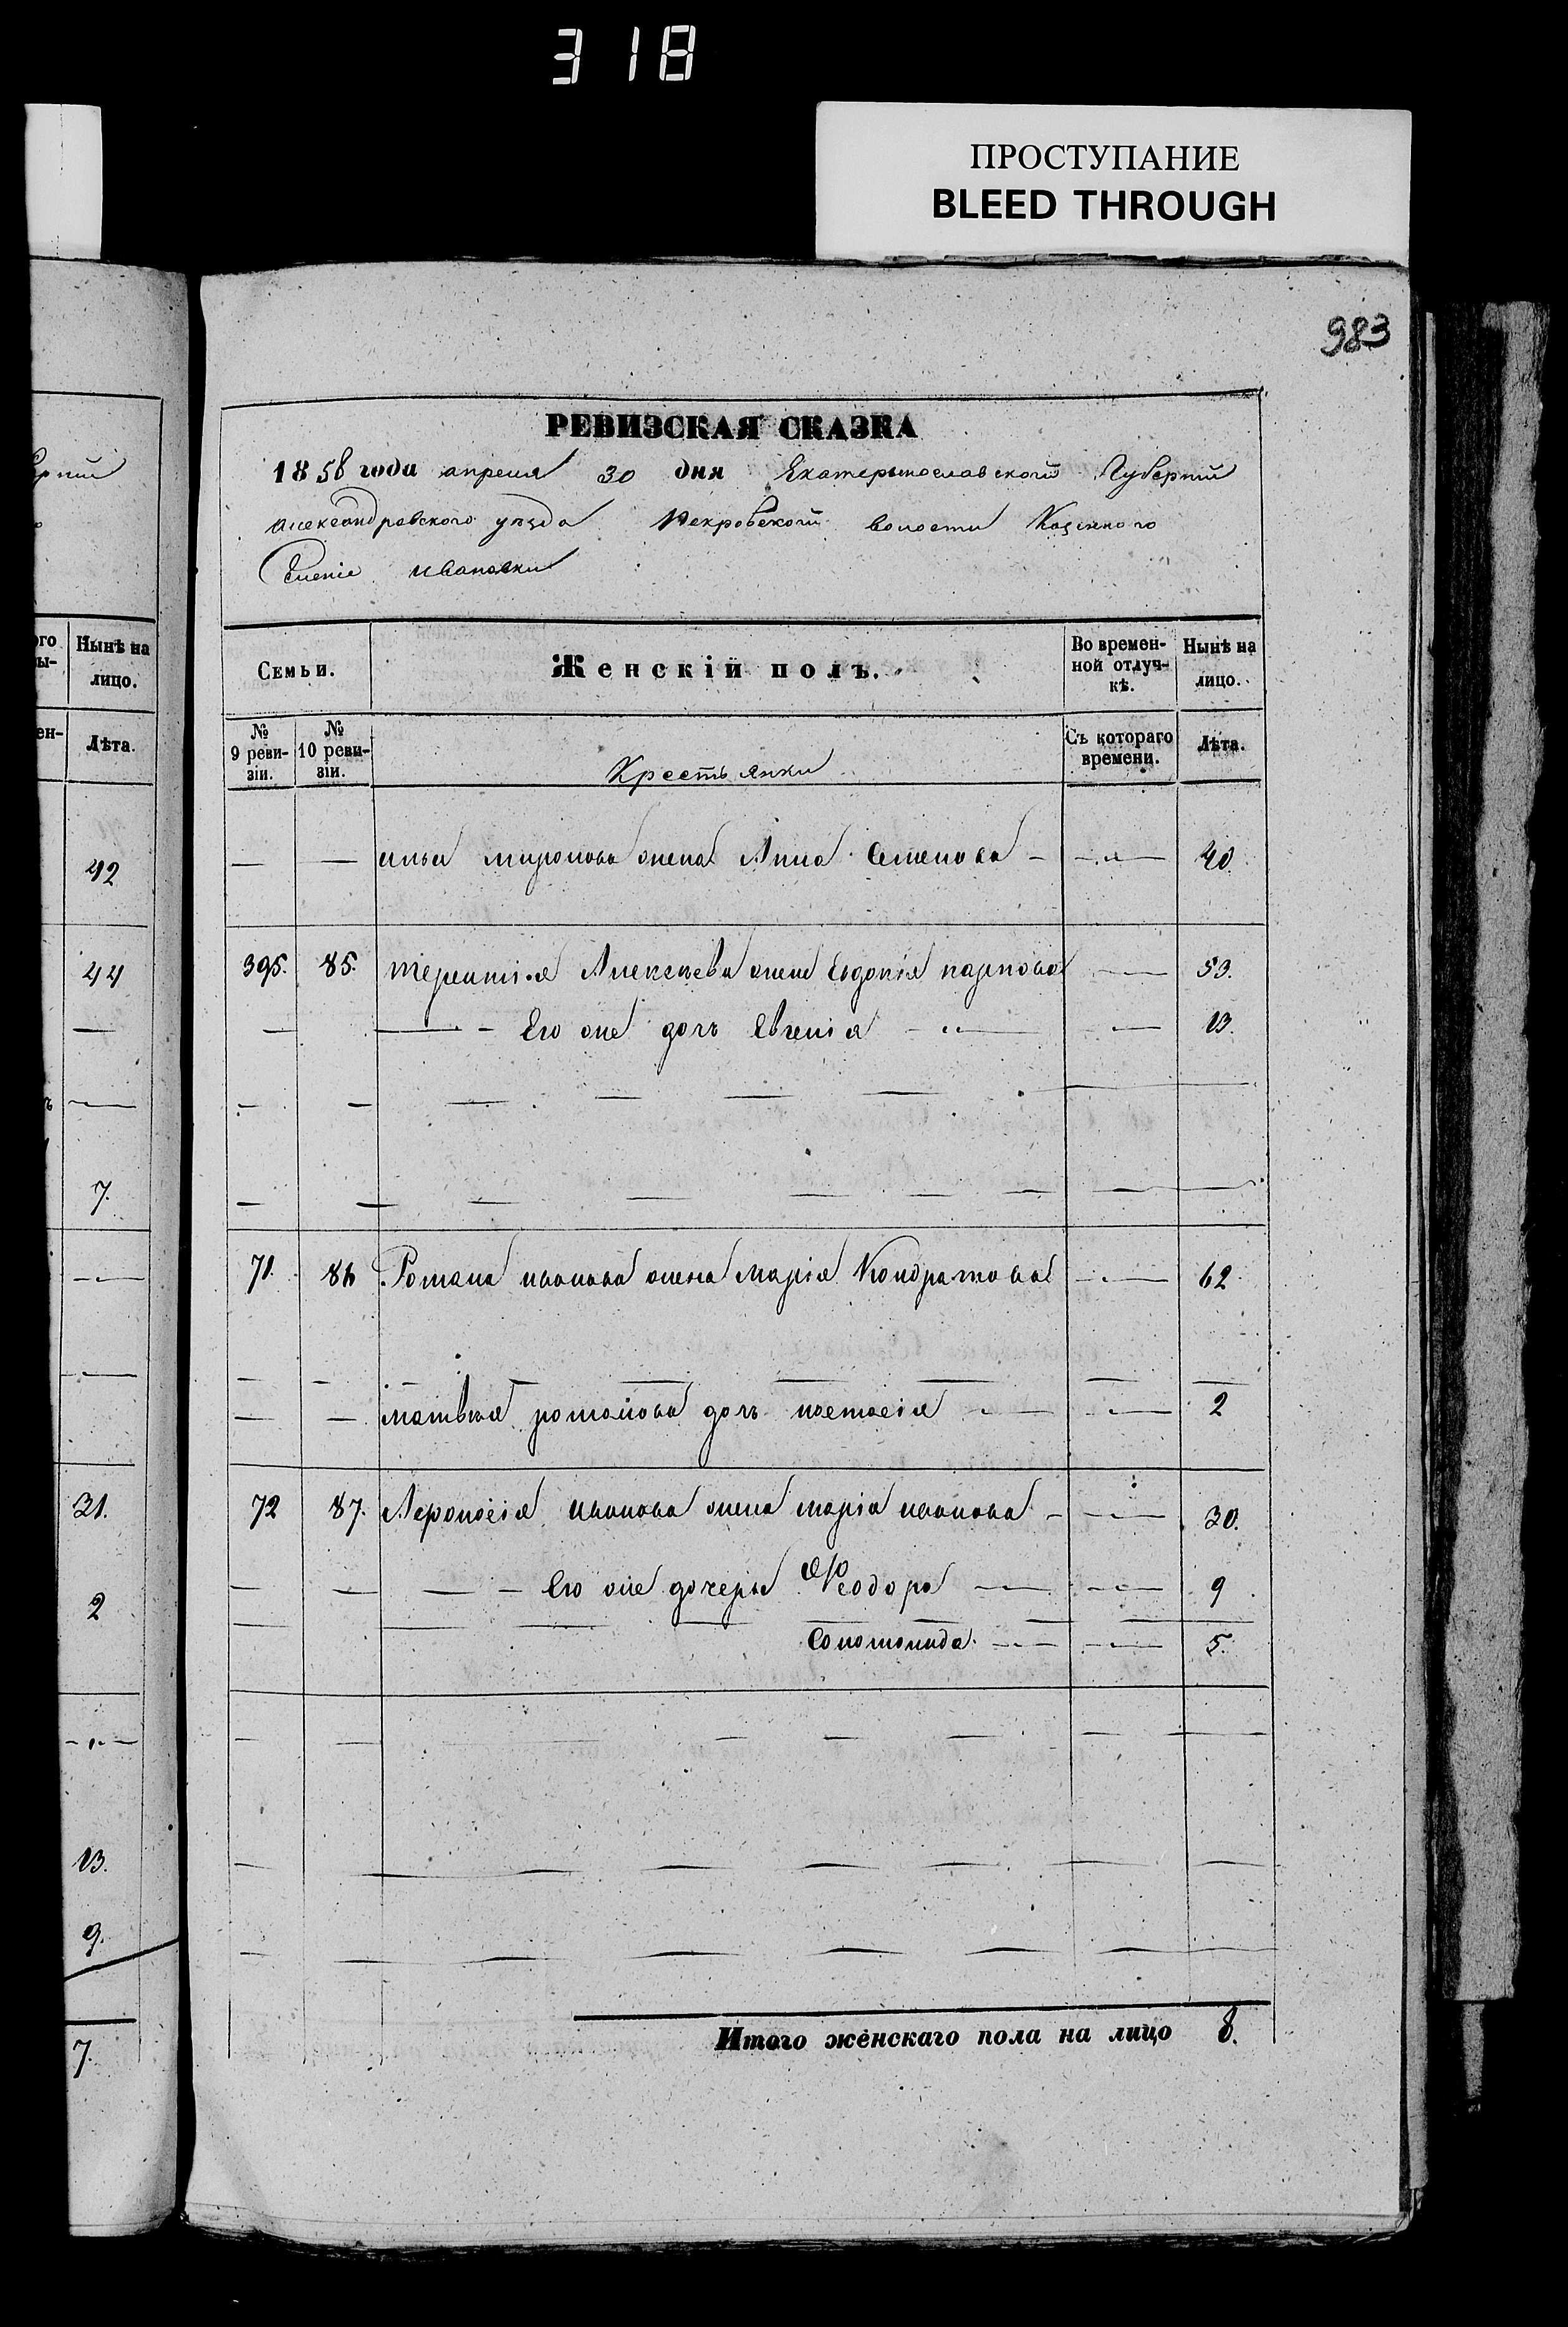 318
ПРОСТУПАНИЕ
BLEED THROUGH
983
РЕВИЗСКАЯ СКАЗКА
1858 года апреля 30 дня Екатерынославской Губернiи
Александравского уезда Покровской волости Казенного
Селенiе Ивановки
Нынѣ на
лицо.
Лѣта.
42
44
7.
31.
2
13.
9.
7.
Семьи.
Женскій полъ.
Во времен-
ной отлуч-
кѣ.
Нынѣ на
лицо.
№
9 реви-
зіи.
№
10 реви-
зіи.
Крестьянки
Съ котораго
времени.
Лѣта.
ильи миронова жена Анна Семенова 40.
395. 85. терентiя Алексеева жена Евдокiя карпова 53.
Его же дочь Евгенiя 13.
71. 86 Романа иванова жена марiя Кондратова 62
матвея романова дочь настасiя 2
72 87. Афонасiя иванова жена марiя иванова 30.
Его же дочери Феодора 9
Соломонида 5.
Итого женскаго пола на лицо 8.